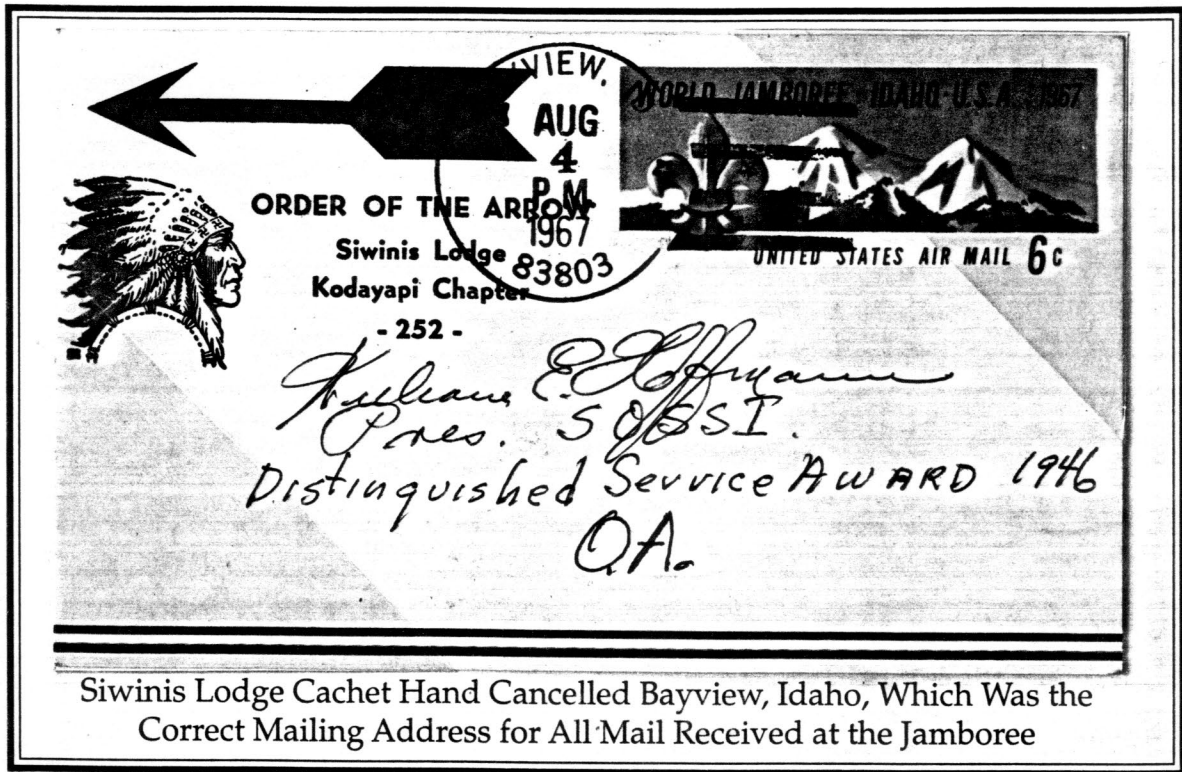 VIEW,
AUG
4
P.M.
1967
83803
WORLD JAMBOREE · IDAHO · U.S.A. 1967
UNITED STATES AIR MAIL 6c
ORDER OF THE ARROW
Siwinis Lodge
Kodayapi Chapter
- 252 -
E. Hoffmann
Pres. SOSSI.
Distinguished Service AWARD 1946
O.A.
Siwinis Lodge Cachet Hand Cancelled Bayview, Idaho, Which Was the
Correct Mailing Address for All Mail Received at the Jamboree